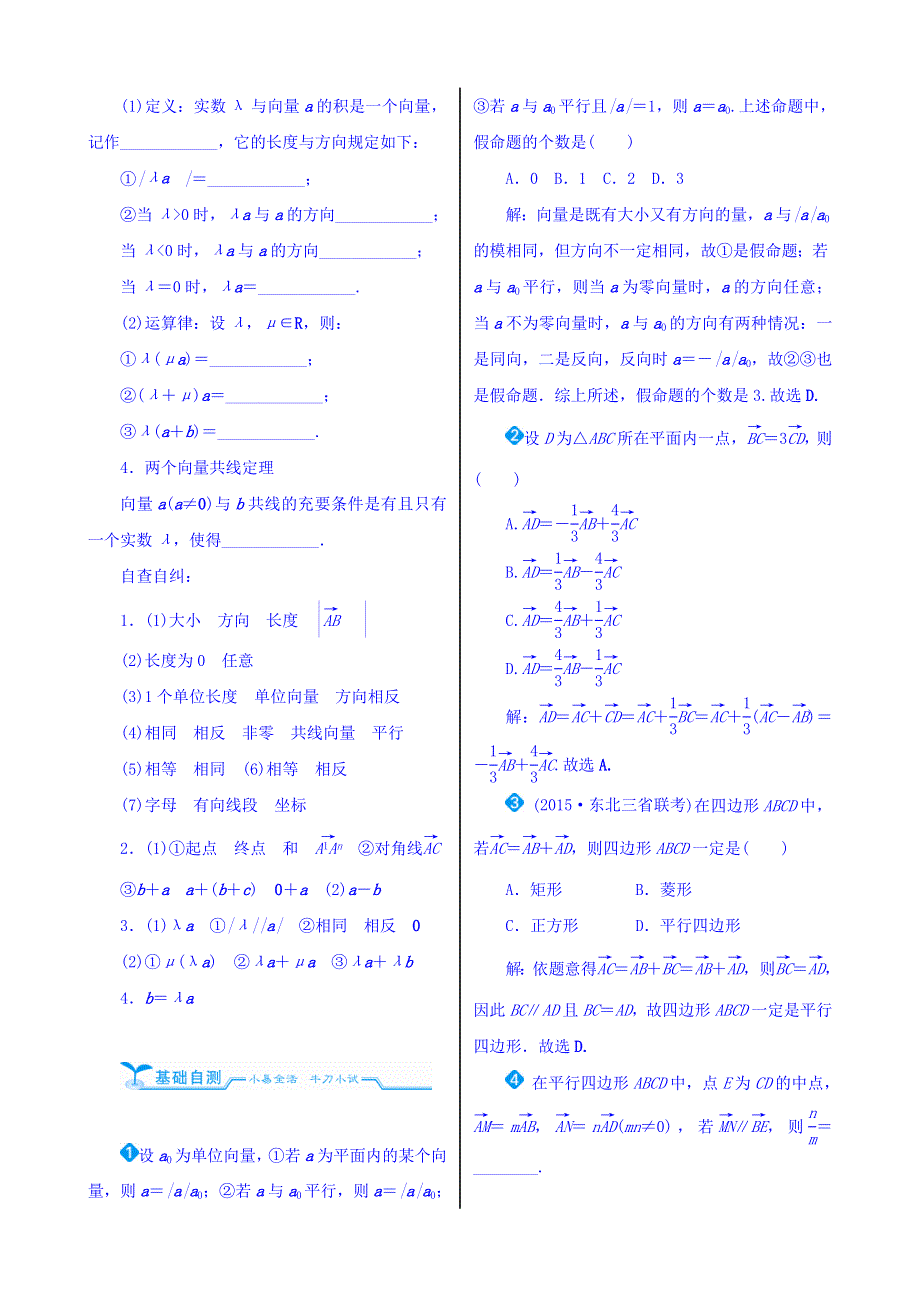 (1)定义：实数 λ 与向量 a 的积是一个向量，
记作____________，它的长度与方向规定如下：
①|λa |＝____________；
②当 λ>0 时，λa 与 a 的方向____________；
当 λ<0 时，λa 与 a 的方向____________；
当 λ＝0 时，λa＝____________．
(2)运算律：设 λ，μ∈R，则：
①λ(μa)＝____________；
②(λ＋μ)a＝____________；
③λ(a＋b)＝____________．
4．两个向量共线定理
向量 a(a≠0)与 b 共线的充要条件是有且只有
一个实数 λ，使得____________．
自查自纠：
1．(1)大小　方向　长度　|$\overrightarrow{AB}$ |
(2)长度为 0　任意
(3)1 个单位长度　单位向量　方向相反
(4)相同　相反　非零　共线向量　平行
(5)相等　相同　(6)相等　相反
(7)字母　有向线段　坐标
2．(1)①起点　终点　和　$\overrightarrow{A^1A^n}$　②对角线$\overrightarrow{AC}$
③b＋a　a＋(b＋c)　0＋a　(2)a－b
3．(1)λa　①|λ||a|　②相同　相反　0
(2)①μ(λa)　②λa＋μa　③λa＋λb
4．b＝λa
基础自测　小易全活　牛刀小试
❶设 a₀ 为单位向量，①若 a 为平面内的某个向
量，则 a＝|a|a₀；②若 a 与 a₀ 平行，则 a＝|a|a₀；
③若 a 与 a₀ 平行且|a|＝1，则 a＝a₀.上述命题中，
假命题的个数是(　　)
A．0　B．1　C．2　D．3
解：向量是既有大小又有方向的量，a 与|a|a₀
的模相同，但方向不一定相同，故①是假命题；若
a 与 a₀ 平行，则当 a 为零向量时，a 的方向任意；
当 a 不为零向量时，a 与 a₀ 的方向有两种情况：一
是同向，二是反向，反向时 a＝－|a|a₀，故②③也
是假命题．综上所述，假命题的个数是 3.故选 D.
❷设 D 为△ABC 所在平面内一点，$\overrightarrow{BC}$＝3$\overrightarrow{CD}$，则
(　　)
A.$\overrightarrow{AD}$＝－$\frac{1}{3}\overrightarrow{AB}$＋$\frac{4}{3}\overrightarrow{AC}$
B.$\overrightarrow{AD}$＝$\frac{1}{3}\overrightarrow{AB}$－$\frac{4}{3}\overrightarrow{AC}$
C.$\overrightarrow{AD}$＝$\frac{4}{3}\overrightarrow{AB}$＋$\frac{1}{3}\overrightarrow{AC}$
D.$\overrightarrow{AD}$＝$\frac{4}{3}\overrightarrow{AB}$－$\frac{1}{3}\overrightarrow{AC}$
解：$\overrightarrow{AD}$＝$\overrightarrow{AC}$＋$\overrightarrow{CD}$＝$\overrightarrow{AC}$＋$\frac{1}{3}\overrightarrow{BC}$＝$\overrightarrow{AC}$＋$\frac{1}{3}$($\overrightarrow{AC}$－$\overrightarrow{AB}$)＝
－$\frac{1}{3}\overrightarrow{AB}$＋$\frac{4}{3}\overrightarrow{AC}$.故选 A.
❸ (2015·东北三省联考)在四边形 ABCD 中，
若$\overrightarrow{AC}$＝$\overrightarrow{AB}$＋$\overrightarrow{AD}$，则四边形 ABCD 一定是(　　)
A．矩形　　B．菱形
C．正方形　　D．平行四边形
解：依题意得$\overrightarrow{AC}$＝$\overrightarrow{AB}$＋$\overrightarrow{BC}$＝$\overrightarrow{AB}$＋$\overrightarrow{AD}$，则$\overrightarrow{BC}$＝$\overrightarrow{AD}$，
因此 BC∥AD 且 BC＝AD，故四边形 ABCD 一定是平行
四边形．故选 D.
❹ 在平行四边形 ABCD 中，点 E 为 CD 的中点，
$\overrightarrow{AM}$＝m$\overrightarrow{AB}$，$\overrightarrow{AN}$＝n$\overrightarrow{AD}$(mn≠0)，若$\overrightarrow{MN}$∥$\overrightarrow{BE}$，则$\frac{n}{m}$＝
________．